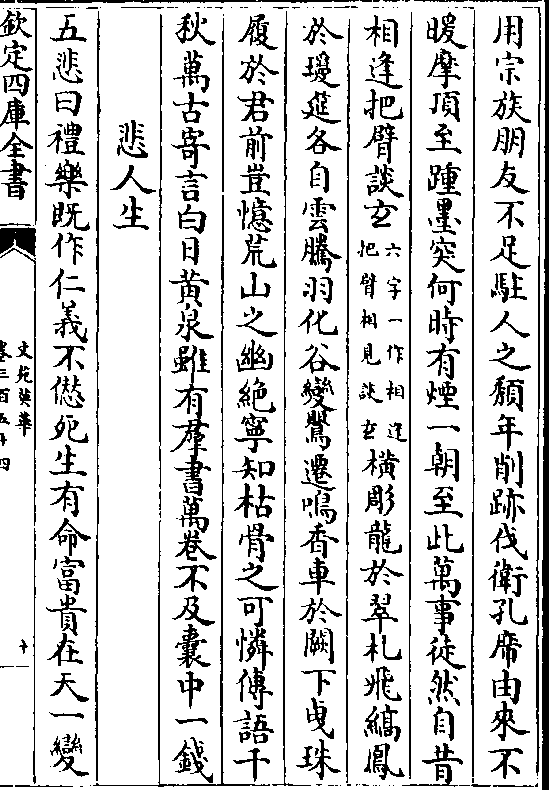 用宗族朋友不足駐人之頽年削跡伐衛孔席由來不
暖摩頂至踵墨突何時有煙一朝至此萬事徒然自昔
相逢把臂談玄六字一作相逢把臂相見談玄橫彫龍於翠札飛縞鳳
於瓊筵各自雲騰羽化谷變鸎遷鳴香車於闕下曵珠
履於君前豈憶荒山之幽絶寧知枯骨之可憐傳語千
秋萬古寄言白日黄泉雖有羣書萬卷不及囊中一錢
悲人生
五悲曰禮樂既作仁義不愆死生有命富貴在天一變
欽定四庫全書
文苑英華
卷三百五十四
十